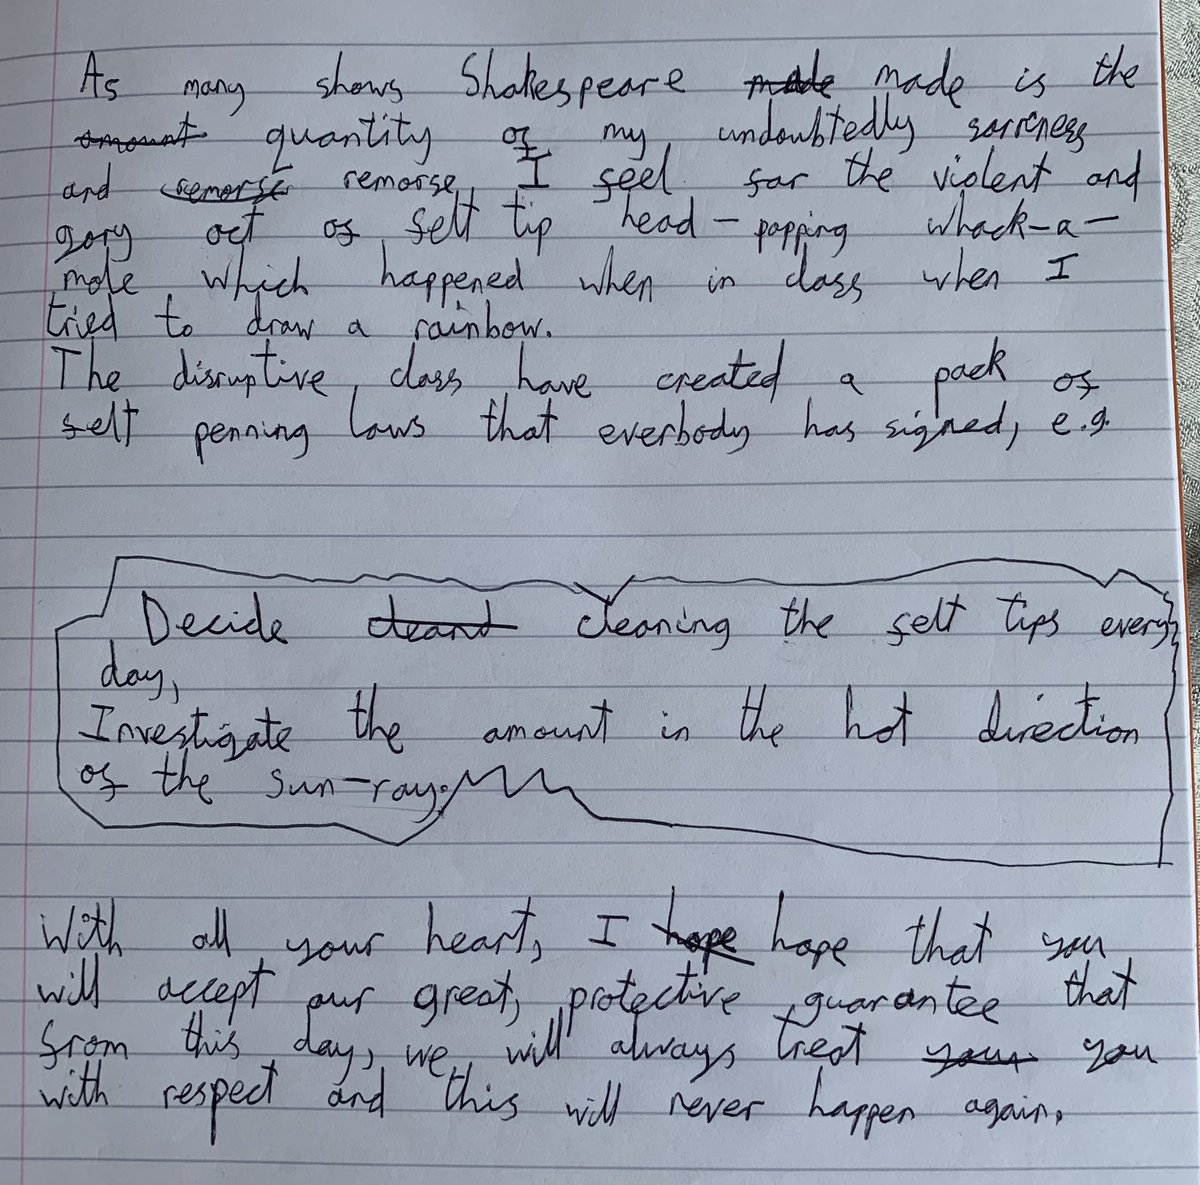 As many shows Shakespeare made made is the
amount quantity of my undoubtedly sorriness
and remorse remorse, I feel for the violent and
gory act of felt tip head-popping whack-a-
mole which happened when in class when I
tried to draw a rainbow.
The disruptive class have created a pack of
felt penning laws that everbody has signed, e.g.
Decide cleand cleaning the felt tips every
day,
Investigate the amount in the hot direction
of the sun-ray.
With all your heart, I hope hope that you
will accept our great, protective guarantee that
from this day, we will always treat your you
with respect and this will never happen again.